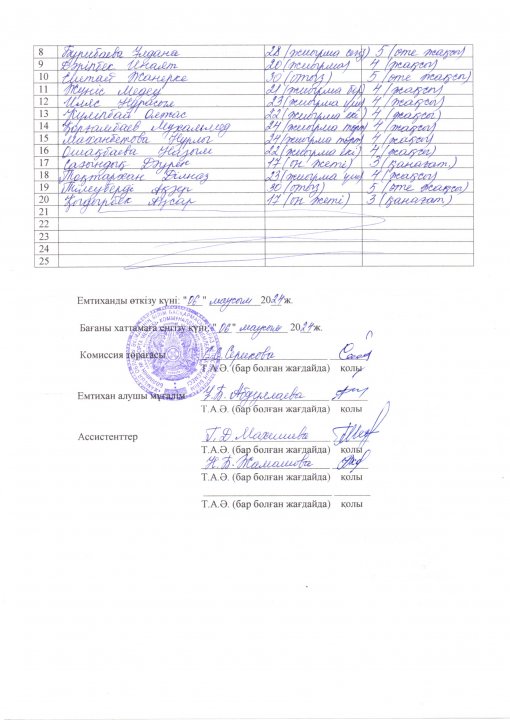 8 Бурибаева Улдана 28 (жиырма сегіз) 5 (өте жақсы)
9 Дәріпбек Инаят 20 (жиырма) 4 (жақсы)
10 Ерметай Жанерке 30 (отыз) 5 (өте жақсы)
11 Жүніс Медеу 21 (жиырма бір) 4 (жақсы)
12 Ильяс Нұрасыл 23 (жиырма үш) 4 (жақсы)
13 Күмербай Елтас 22 (жиырма екі) 4 (жақсы)
14 Қорғамбаев Мұхаммед 24 (жиырма төрт) 4 (жақсы)
15 Маханбетова Нұрлы 24 (жиырма төрт) 4 (жақсы)
16 Ошақбаева Назым 22 (жиырма екі) 4 (жақсы)
17 Сағындық 17 (он жеті) 3 (қанағат)
18 Тоқтархан Ділназ 23 (жиырма үш) 4 (жақсы)
19 Тілеуберді 30 (отыз) 5 (өте жақсы)
20 Қыдырбек Ақсар 17 (он жеті) 3 (қанағат)
21
22
23
24
25
Емтиханды өткізу күні: "06" маусым 2024ж.
Бағаны хаттамаға енгізу күні: "06" маусым 2024ж.
Комиссия төрағасы Серикова
Т.А.Ә. (бар болған жағдайда) қолы
Емтихан алушы мұғалім У.Б. Абдуллаева
Т.А.Ә. (бар болған жағдайда) қолы
Ассистенттер Г.Д Махишева
Т.А.Ә. (бар болған жағдайда) қолы
Н.Б. Жамашова
Т.А.Ә. (бар болған жағдайда) қолы
Т.А.Ә. (бар болған жағдайда) қолы